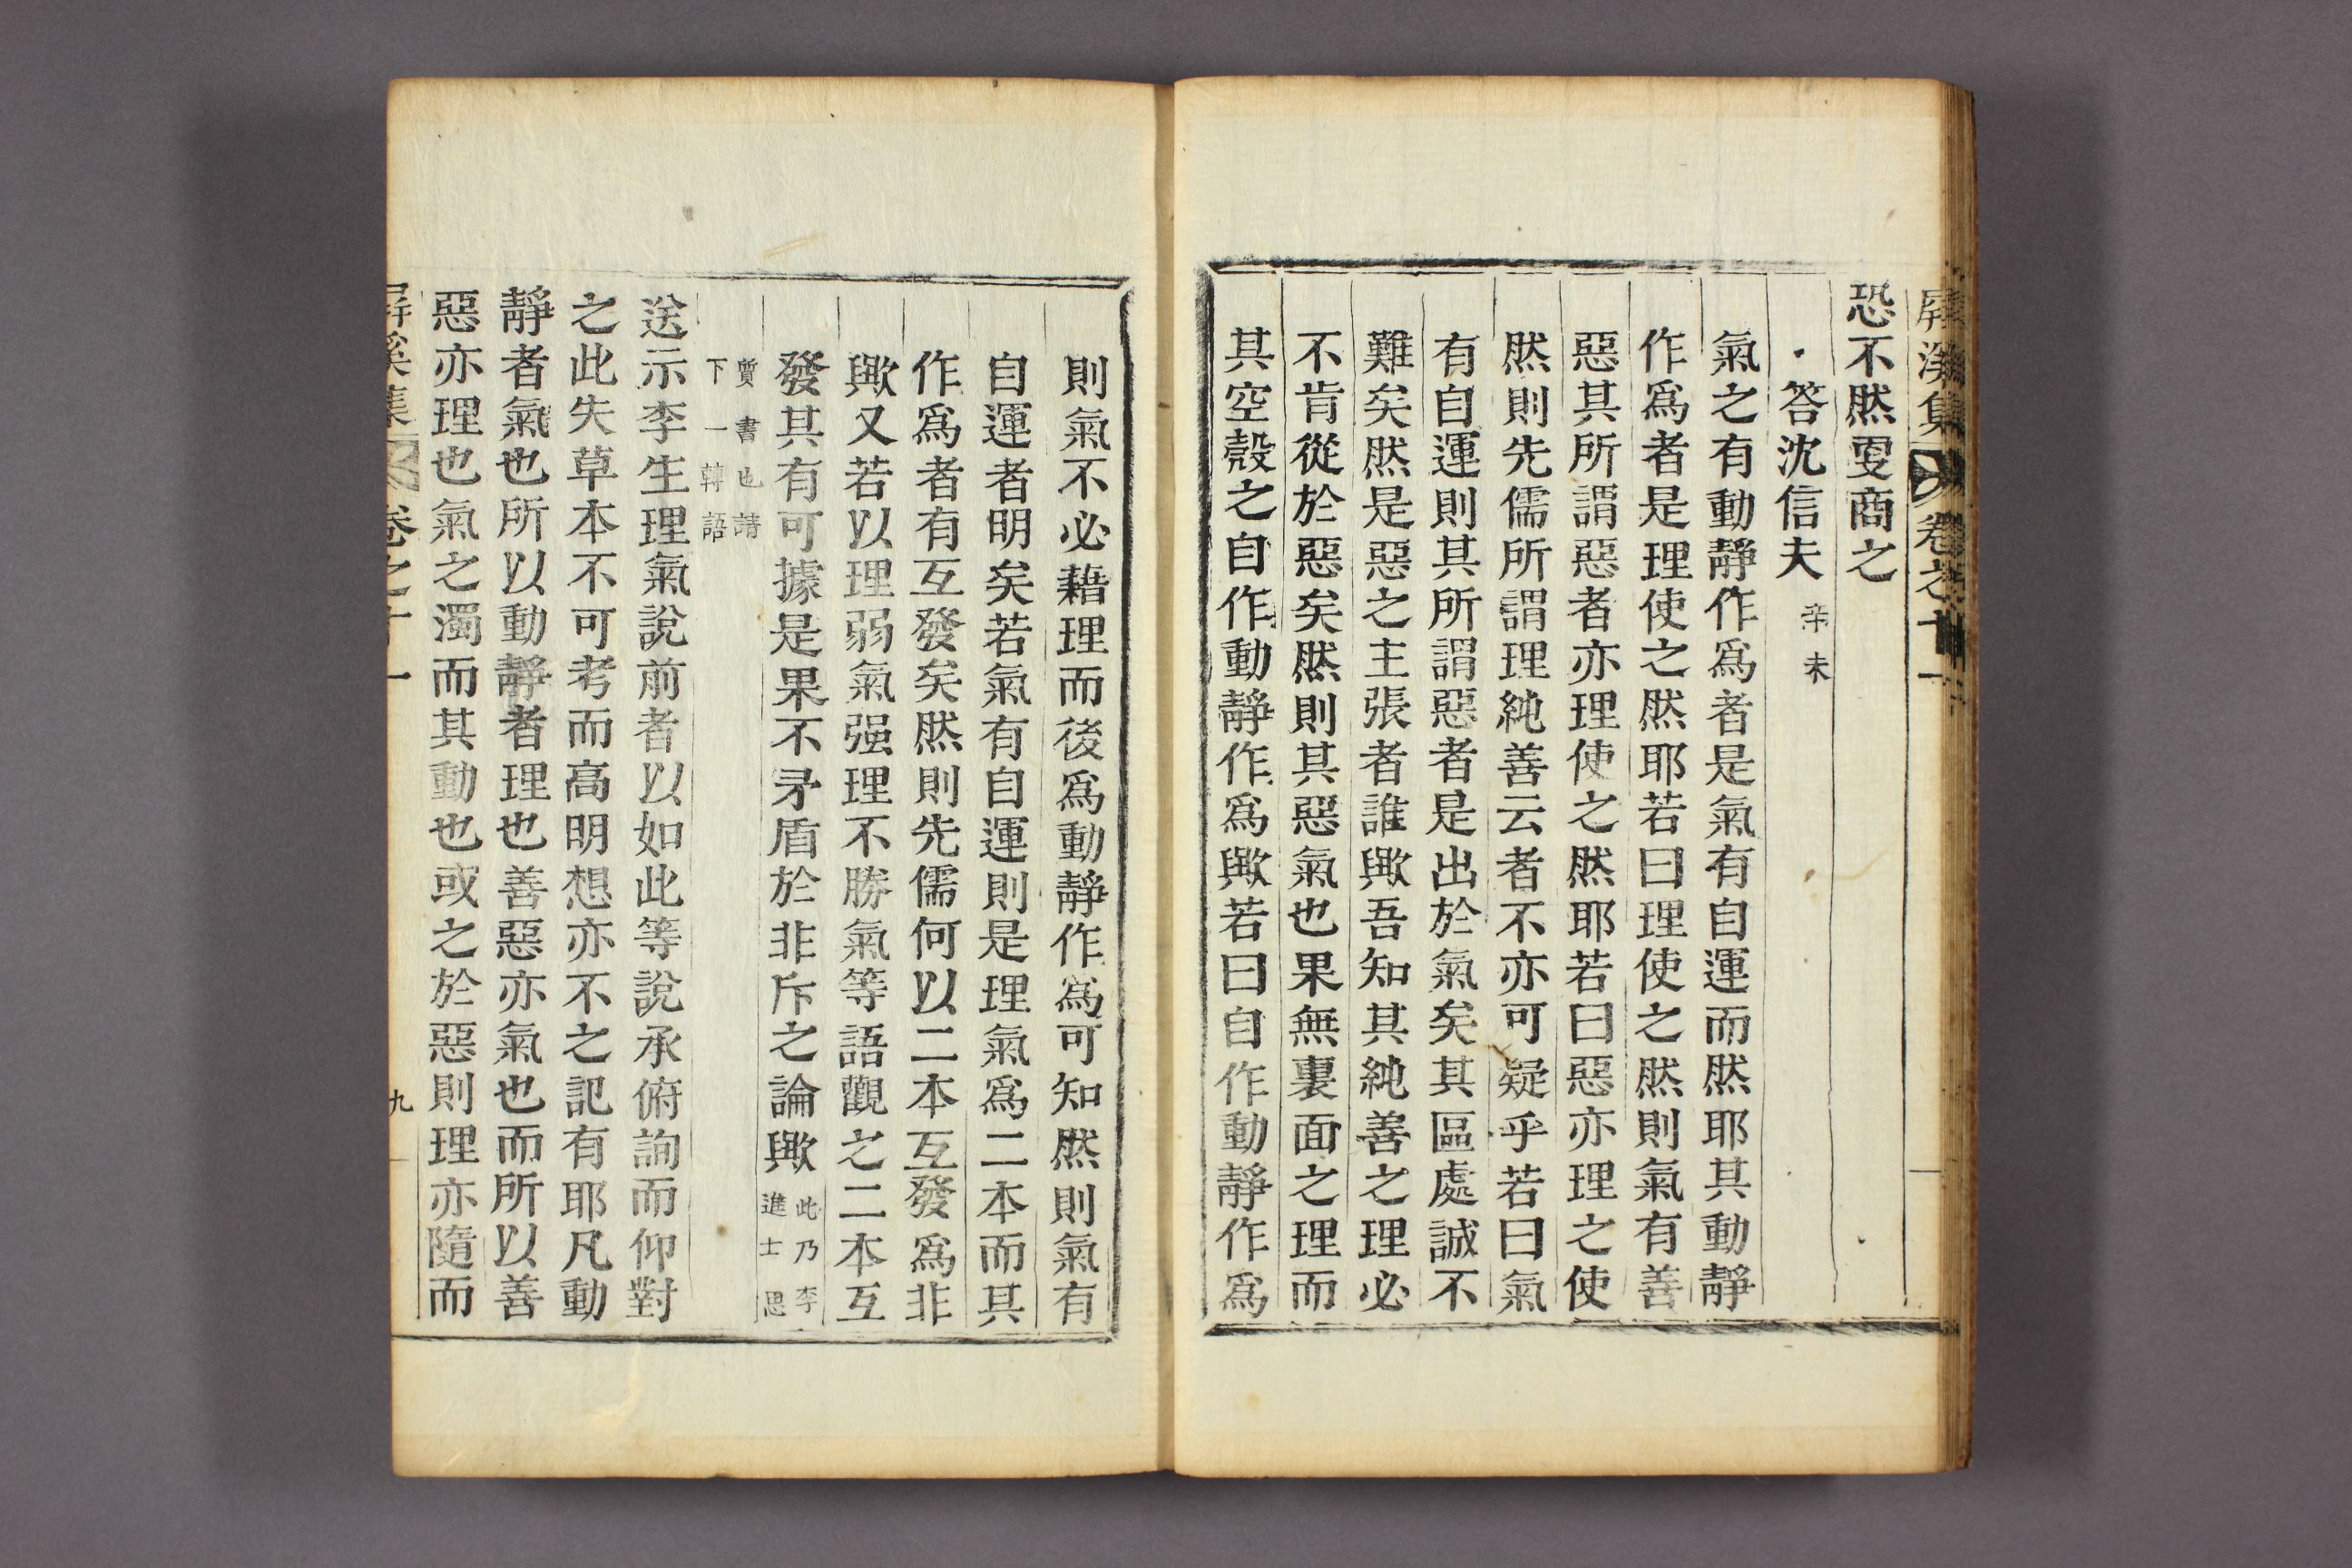 屛溪集 卷之十一
恐不然更商之
答沈信夫 辛未
氣之有動靜作爲者是氣有自運而然耶其動靜
作爲者是理使之然耶若曰理使之然則氣有善
惡其所謂惡者亦理使之然耶若曰惡亦理之使
然則先儒所謂理純善云者不亦可疑乎若曰氣
有自運則其所謂惡者是出於氣矣其區處誠不
難矣然是惡之主張者誰歟吾知其純善之理必
不肯從於惡矣然則其惡氣也果無裏面之理而
其空殼之自作動靜作爲歟若曰自作動靜作爲
則氣不必藉理而後爲動靜作爲可知然則氣有
自運者明矣若氣有自運則是理氣爲二本而其
作爲者有互發矣然則先儒何以二本互發爲非
歟又若以理弱氣强理不勝氣等語觀之二本互
發其有可據是果不矛盾於非斥之論歟 此乃李
進士思
質書也請
下一轉語
送示李生理氣說前者以如此等說承俯詢而仰對
之此失草本不可考而高明想亦不之記有耶凡動
靜者氣也所以動靜者理也善惡亦氣也而所以善
惡亦理也氣之濁而其動也或之於惡則理亦隨而
屛溪集 卷之十一 九